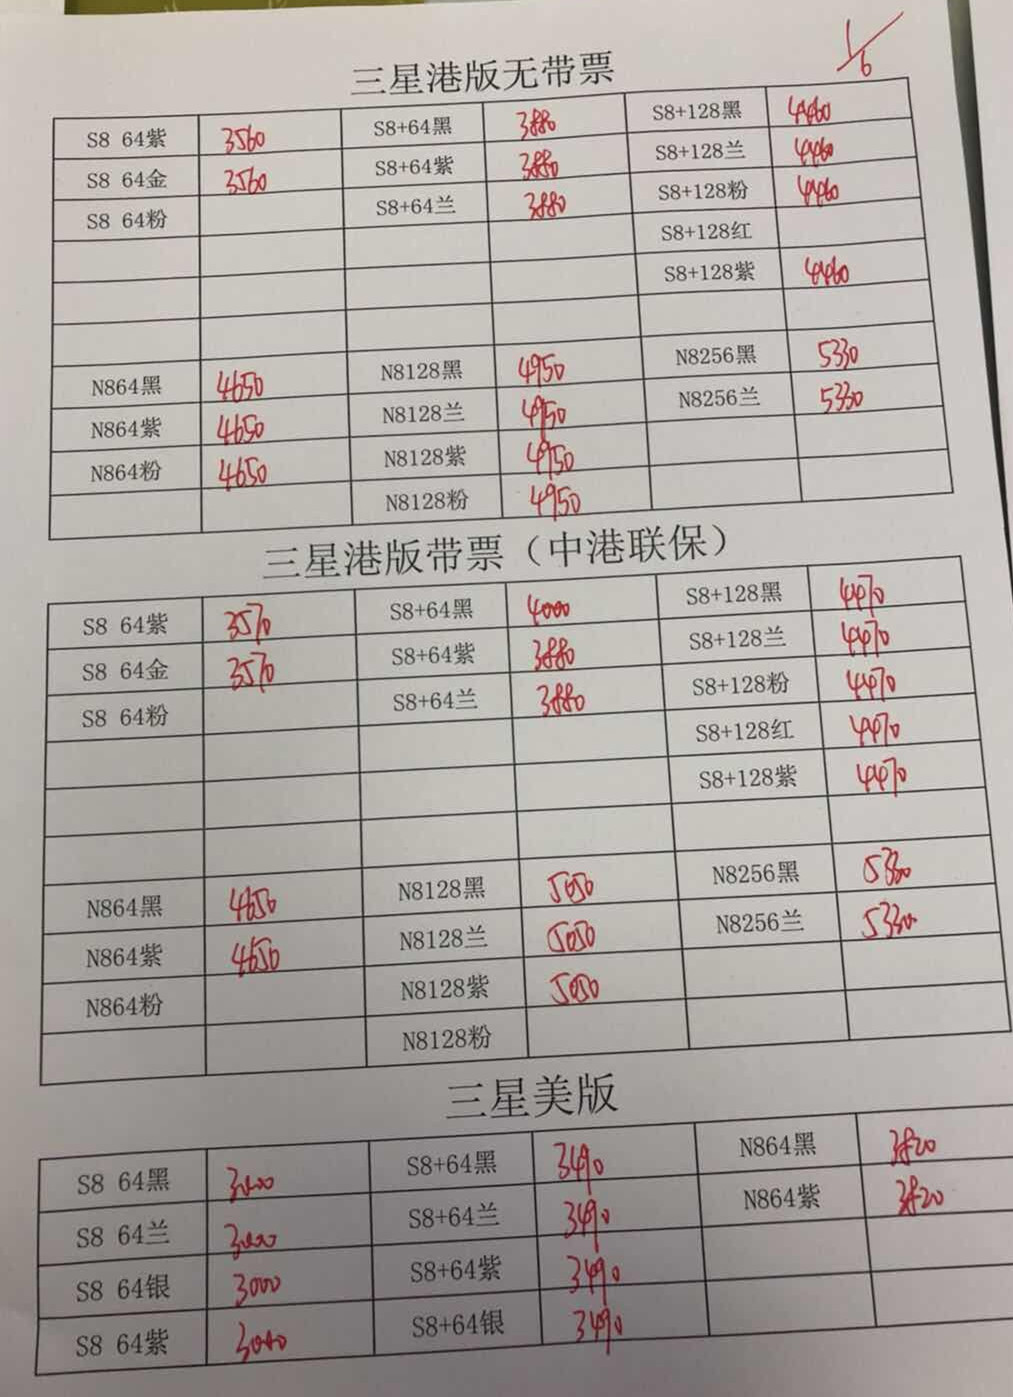 1/6
三星港版无带票
S8 64紫 3560 S8+64黑 3880 S8+128黑 4460
S8 64金 3560 S8+64紫 3880 S8+128兰 4460
S8 64粉 S8+64兰 3880 S8+128粉 4460
S8+128红
S8+128紫 4460
N864黑 4650 N8128黑 4950 N8256黑 5330
N864紫 4650 N8128兰 4950 N8256兰 5330
N864粉 4650 N8128紫 4950
N8128粉 4950
三星港版带票（中港联保）
S8 64紫 3570 S8+64黑 4000 S8+128黑 4470
S8 64金 3570 S8+64紫 3880 S8+128兰 4470
S8 64粉 S8+64兰 3880 S8+128粉 4470
S8+128红 4470
S8+128紫 4470
N864黑 4650 N8128黑 5050 N8256黑 5330
N864紫 4650 N8128兰 5050 N8256兰 5330
N864粉 N8128紫 5050
N8128粉
三星美版
S8 64黑 3000 S8+64黑 3490 N864黑 3820
S8 64兰 3000 S8+64兰 3490 N864紫 3820
S8 64银 3000 S8+64紫 3490
S8 64紫 3000 S8+64银 3490